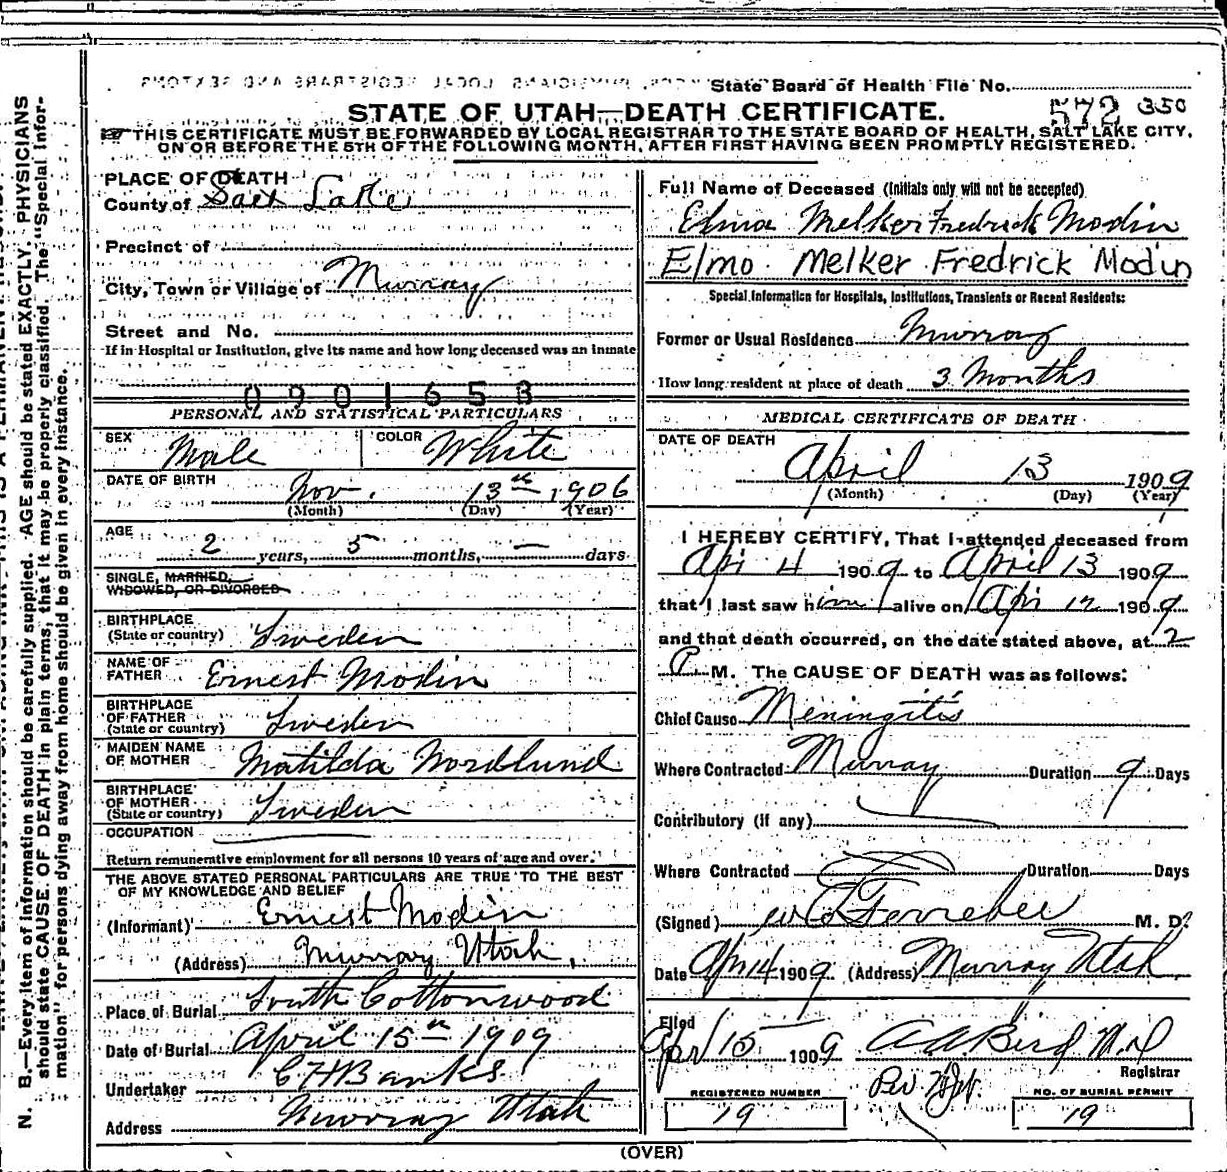 State Board of Health File No.
572 350
STATE OF UTAH—DEATH CERTIFICATE.
THIS CERTIFICATE MUST BE FORWARDED BY LOCAL REGISTRAR TO THE STATE BOARD OF HEALTH, SALT LAKE CITY,
ON OR BEFORE THE 5TH OF THE FOLLOWING MONTH, AFTER FIRST HAVING BEEN PROMPTLY REGISTERED.
PLACE OF DEATH
County of Salt Lake
Precinct of
City, Town or Village of Murray
Street and No.
If in Hospital or Institution, give its name and how long deceased was an inmate
0901653
PERSONAL AND STATISTICAL PARTICULARS
SEX Male COLOR White
DATE OF BIRTH Nov. 13th 1906
(Month) (Day) (Year)
AGE 2 years, 5 months, — days
SINGLE, MARRIED,
WIDOWED, OR DIVORCED
BIRTHPLACE
(State or country) Sweden
NAME OF
FATHER Ernest Modin
BIRTHPLACE
OF FATHER
(State or country) Sweden
MAIDEN NAME
OF MOTHER Matilda Nordlund
BIRTHPLACE
OF MOTHER
(State or country) Sweden
OCCUPATION
Return remunerative employment for all persons 10 years of age and over.
THE ABOVE STATED PERSONAL PARTICULARS ARE TRUE TO THE BEST
OF MY KNOWLEDGE AND BELIEF
(Informant) Ernest Modin
(Address) Murray Utah,
Place of Burial South Cottonwood
Date of Burial April 15th 1909
Undertaker C H Banks
Address Murray Utah
Full Name of Deceased (Initials only will not be accepted)
Elma Melker Fredrick Modin
Elmo Melker Fredrick Modin
Special Information for Hospitals, Institutions, Transients or Recent Residents:
Former or Usual Residence Murray
How long resident at place of death 3 Months
MEDICAL CERTIFICATE OF DEATH
DATE OF DEATH
April 13 1909
(Month) (Day) (Year)
I HEREBY CERTIFY, That I attended deceased from
Apr 4 1909 to April 13 1909
that I last saw him alive on Apr 12 1909
and that death occurred, on the date stated above, at 2
P M. The CAUSE OF DEATH was as follows:
Chief Cause Meningitis
Where Contracted Murray Duration 9 Days
Contributory (if any)
Where Contracted Duration Days
(Signed) M. D.
Date Apr 14 1909 (Address) Murray Utah
Filed
Apr 15 1909 A A Bird M D
Registrar
REGISTERED NUMBER
19
NO. OF BURIAL PERMIT
19
(OVER)
N. B.—Every item of information should be carefully supplied. AGE should be stated EXACTLY. PHYSICIANS
should state CAUSE OF DEATH in plain terms, that it may be properly classified. The "Special Infor-
mation" for persons dying away from home should be given in every instance.